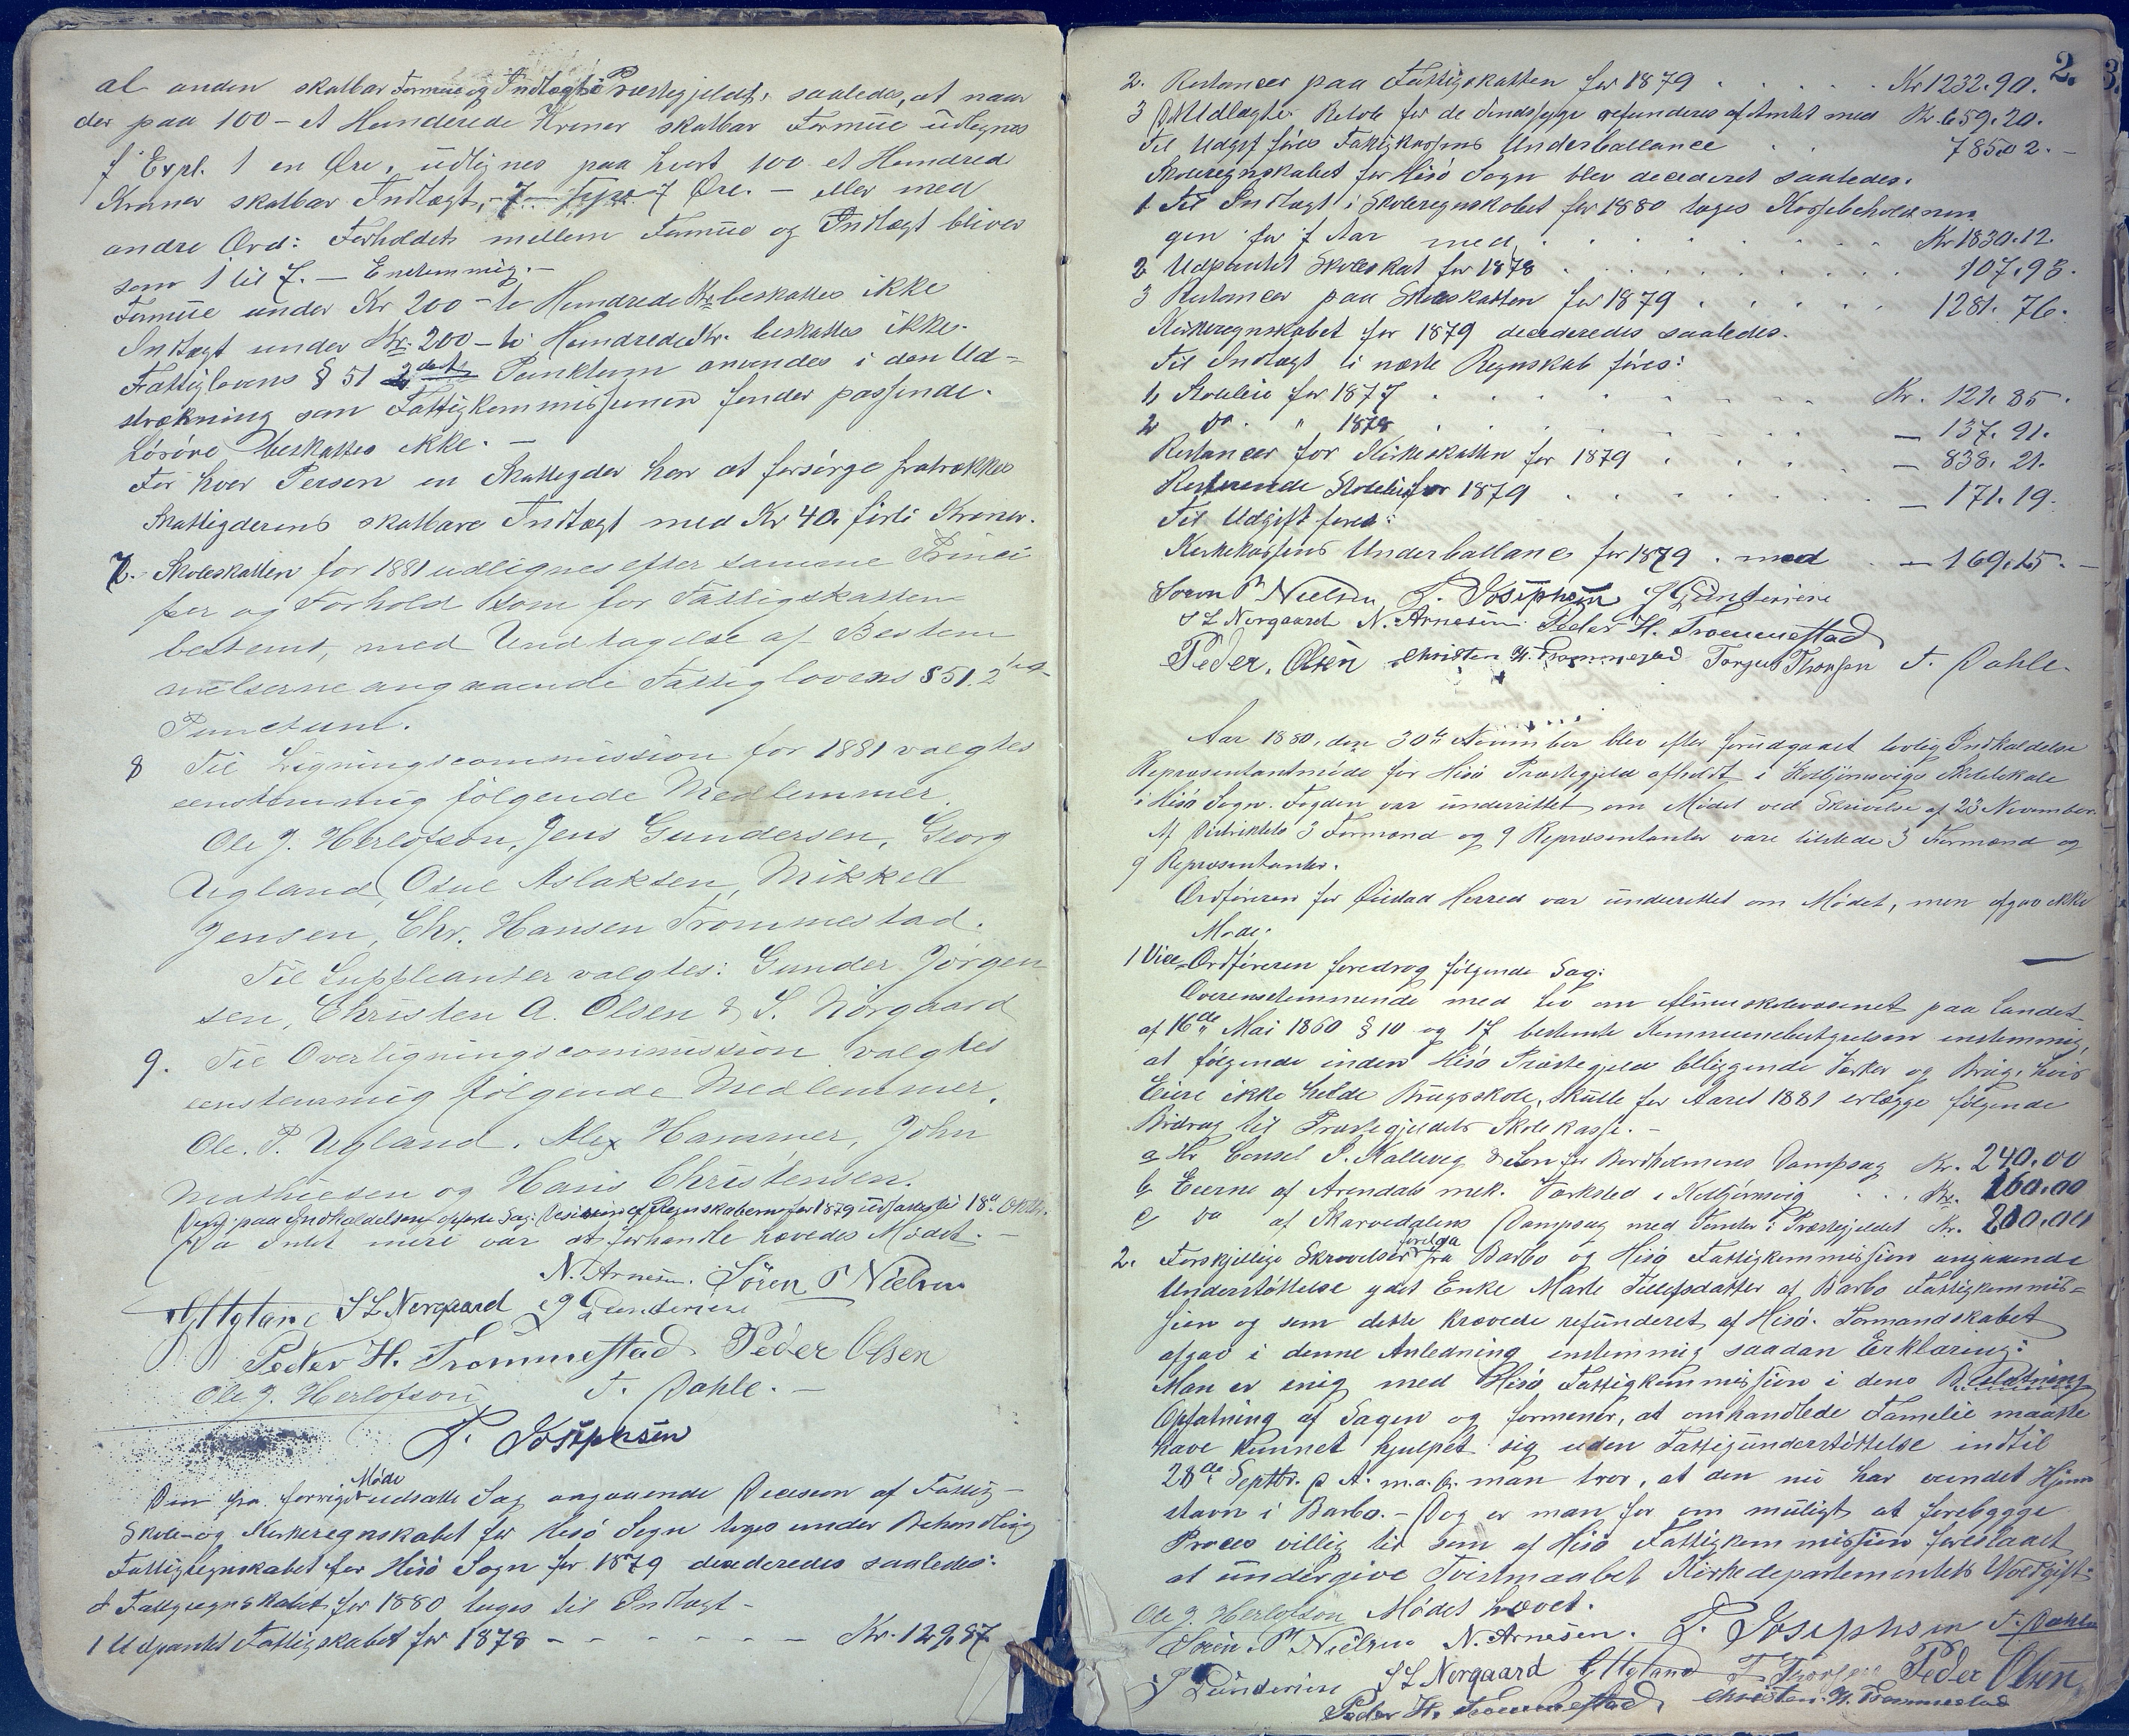 al anden skatbar Formue og Indtægt i Præstegjeldet, saaledes, at naar
der paa 100 – et Hundrede Kroner skatbar Formue udlignes
f Expl. 1 en Øre, udlignes paa hvert 100 et Hundred
Kroner skatbar Indtægt, 7 Øre. – eller med
andre Ord: Forholdet mellem Formue og Indtægt bliver
som 1 til 7. – Enstemmig. –
Formue under Kr 200 – to Hundrede Kr beskattes ikke
Indtægt under Kr. 200 – to Hundrede Kr. beskattes ikke.
Fattiglovens § 51 2det Punktum anvendes i den Ud-
strækning som Fattigkommissionen finder passende.
Løsøre beskattes ikke. –
For hver Person en Skatteyder har at forsørge fratrækkes
Skatteyderens skatbare Indtægt med Kr 40. førti Kroner.
7. Skoleskatten for 1881 udlignes efter samme Princi
per og Forhold som for Fattigskatten
bestemt, med Undtagelse af Bestem
melserne angaaende Fattiglovens § 51. 2det
Punctum.
8 Til Ligningscommission for 1881 valgtes
eenstemmig følgende Medlemmer.
Ole J. Herlofson, Jens Gundersen, Georg
Ugland, Osul Aslaksen, Mikkel
Jensen, Chr. Hansen Trommestad.
Til Suppleanter valgtes: Gunder Jørgen
sen, Christen A. Olsen & S. Nörgaard
9. Til Overligningscommission valgtes
eenstemmig følgende Medlemmer.
Ole. P. Ugland, Alex Hammer, John
Mathiesen og Hans Christensen.
Den paa Indkaldelsen opførte Sag: Decision af Regnskaberne for 1879 udsattes til 18de Oktbr.
Da Intet mere var at forhandle hævedes Mødet. –
N. Arnesen. Sören P Nielsen
G Ugland S L Nørgaard J Gundersen
Peder H. Trommestad Peder Olsen
Ole J. Herlofson T. Dahle. –
T. Josephsen
Den fra forrige Møde udsatte Sag angaaende Decision af Fattig-
Skole- og Kirkeregnskabet for Hisö Sogn toges under Behandling
Fattigregnskabet for Hisö Sogn for 1879 decideredes saaledes:
I Fattigregnskabet for 1880 tages til Indtægt –
1 Udpantet Fattigskat for 1878 – – – – – – Kr. 129.87
2.
2. Restancer paa Fattigskatten for 1879 . . . . . Kr 1232.90.
3 Udlagte Beløb for de Sindssyge refunderes af Amtet med Kr. 659.20.
Til Udgift føres Fattigkassens Underballance . . 785.02. –
Skoleregnskabet for Hisö Sogn blev decideret saaledes.
1 Til Indtægt i Skoleregnskabet for 1880 tages Kassebeholdnin
gen for f Aar med . . . . . . . . Kr 1830.12.
2 Udpantet Skoleskat for 1878 . . . . . . . 107.93.
3 Restancer paa Skoleskatten for 1879 . . . . . 1281.76.
Kirkeregnskabet for 1879 decideredes saaledes.
Til Indtægt i næste Regnskab føres:
1, Stoleleie for 1877 . . . . . . Kr. 121.85.
2 Do. " 1878 . . . . . . – 137.91.
Restancer for Kirkeskatten for 1879 . . . . – 838.21.
Resterende Stoleleie for 1879 . . . . . . – 171.19.
Til Udgift føres:
Kirkekassens Underballance for 1879 . med . – 169.15. –
Søren P Nielsen T. Josephsen J Gundersen
S L Nørgaard N. Arnesen Peder H. Trommestad
Peder. Olsen Christen H. Trommestad Torgus Thorsen T. Dahle.
Aar 1880, den 30te November blev efter forudgaaet lovlig Indkaldelse
Repræsentantmøde for Hisö Præstegjeld afholdt i Kolbjørnsvigs Skolelokale
i Hisö Sogn. Fogden var underrettet om Mødet ved Skrivelse af 23 November.
Af Distriktets 3 Formænd og 9 Repræsentanter vare tilstede 3 Formænd og
9 Repræsentanter.
Ordføreren for Øiestad Herred var underrettet om Mødet, men afgav ikke
Møde.
1 Vice-Ordføreren foredrog følgende Sag:
Overensstemmende med Lov om Almueskolevæsenet paa Landet
af 16de Mai 1860 § 10 og 17 bestemte Kommunebestyrelsen enstemmig,
at følgende inden Hisö Præstegjeld beliggende Værker og Brug, hvis
Eiere ikke holde Brugsskole, skulle for Aaret 1881 erlægge følgende
Bidrag til Præstegjeldets Skolekasse. –
a Hr Consul S. Kallevig & Søn for Bordholmens Dampsag Kr. 240.00
b Eierne af Arendals mek. Værksted i Kolbjørnsvig . . . Kr. 160.00
c Do af Skarvedalens Dampsag med Tomter i Præstegjeldet Kr. 200.00
2. Forskjellige Skrivelser forelaa fra Barbo og Hisö Fattigkommission angaaende
Understøttelse ydet Enke Marte Tellefsdatter af Barbo Fattigkommis-
sion og som dette krævede refunderet af Hisö. Formandskabet
afgav i denne Anledning enstemmig saadan Erklæring:
Man er enig med Hisö Fattigkommission i dens
Opfatning af Sagen og formener, at omhandlede Familie maatte
have kunnet hjulpet sig uden Fattigunderstøttelse indtil
28de Septbr. d A. m.a.O. man tror, at den nu har vundet Hjem
stavn i Barbo. – Dog er man for om muligt at forebygge
Proces villig til som af Hisö Fattigkommission foreslaaet
at undergive Tvistmaalet Kirkedepartementets Voldgift.
Ole J. Herlofson Mødet hævet.
Sören P Nielsen N. Arnesen. T. Josephsen T. Dahle
J Gundersen S L Nørgaard G Ugland T Thorsen Peder Olsen
Peder H. Trommestad Christen H. Trommestad